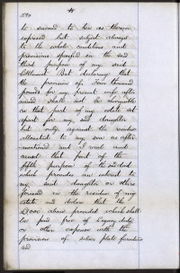 to second to him as therein
expressed but subject always
to the whole conditions and
provisions specified in the said
third purpose of my said
Settlement But declaring that
the provision of Four thousand
pounds for my present wife after
named shall not be chargeable
on that part of my estate set
apart for my said daughter
but only against the residue
allocated to my son as after
mentioned and I recal and
annul that part of the
fifth purpose of the said deed
which provides an interest to
my said daughter or other
persons in the residue of my
estate and declare that the
above provided which shall
be paid free of Legacy duty
or other expense with the
provision of silver plate furniture
and